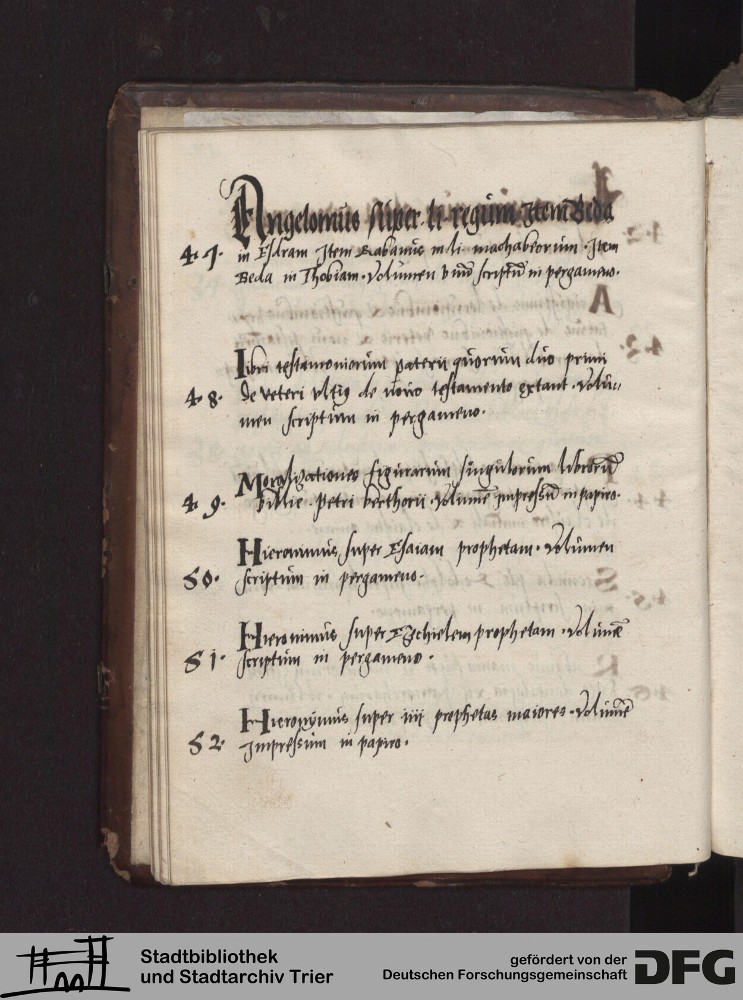 Angelomus super li regum Item Beda
47. in Esdram Item Rabanus in li machabeorum. Item
Beda in Thobiam. Volumen vnū scriptū in pergameno.
Libri testamoniorum paterii quorum duo primi
48. de veteri vltiꝰ de nouo testamento extant. Volu=
men scriptum in pergameno.
Moralizationes figurarum singulorum librorū
49. biblie. petri berthorii. Volumē impressū in papiro.
Hieronimus super Esaiam prophetam. Volumen
50. scriptum in pergameno.
Hieronimus super Ezechielem prophetam. Volumē
51. scriptum in pergameno.
Hieronymus super iiii prophetas maiores. Volumē
52. Impressum in papiro.
Stadtbibliothek
und Stadtarchiv Trier
gefördert von der
Deutschen Forschungsgemeinschaft
DFG